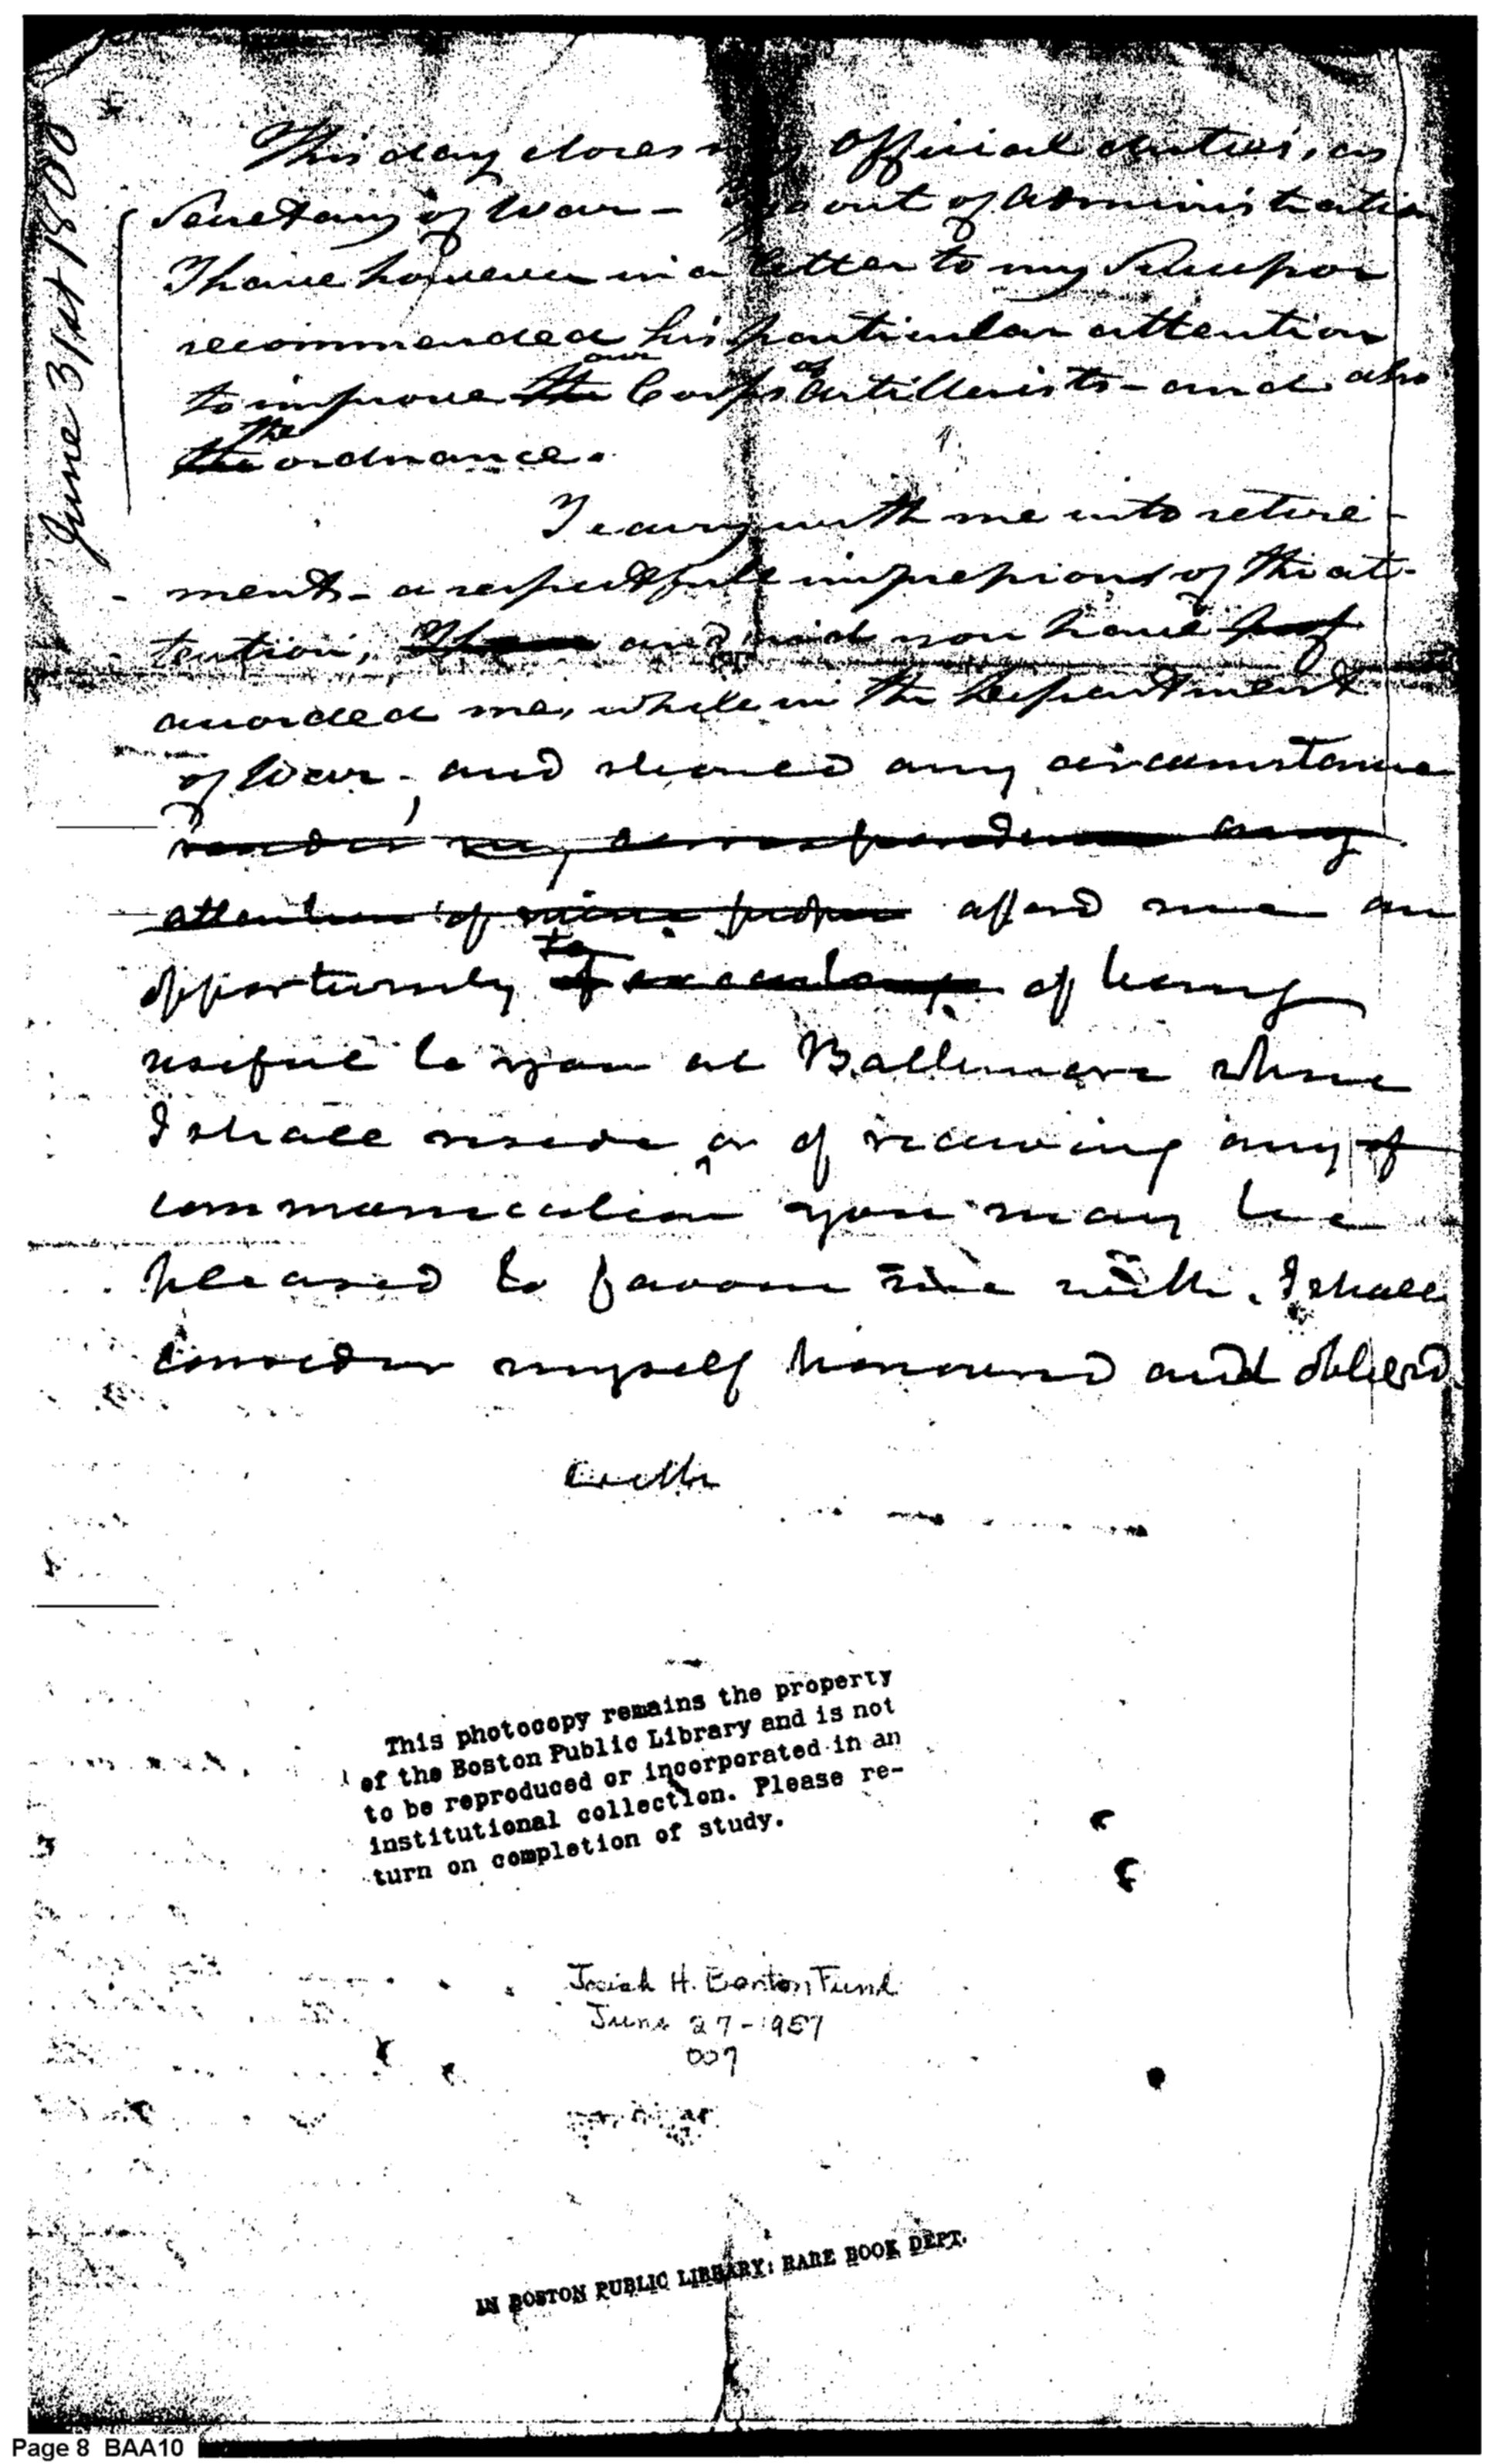 June 31st 1800
This day closes my official duties, as
Secretary of War – out of administration
I have however in a letter to my Successor
recommended his particular attention
to improve the our Corps of Artillerists – and also
the The ordnance.
I carry with me into retire-
ment – a respectfull impressions of the at-
tention, and you have
accorded me, while in the Department
of War, and should any circumstance
render my correspondence any
attention of mine afford me an
opportunity of to of being
useful to you at Baltimore where
I shall reside or of receiving any of
communication you may be
pleased to favour me with. I shall
consider myself honoured and obliged
with
This photocopy remains the property
of the Boston Public Library and is not
to be reproduced or incorporated in an
institutional collection. Please re-
turn on completion of study.
Josiah H. Benton Fund
June 27-1957
007
IN BOSTON PUBLIC LIBRARY: RARE BOOK DEPT.
Page 8 BAA10